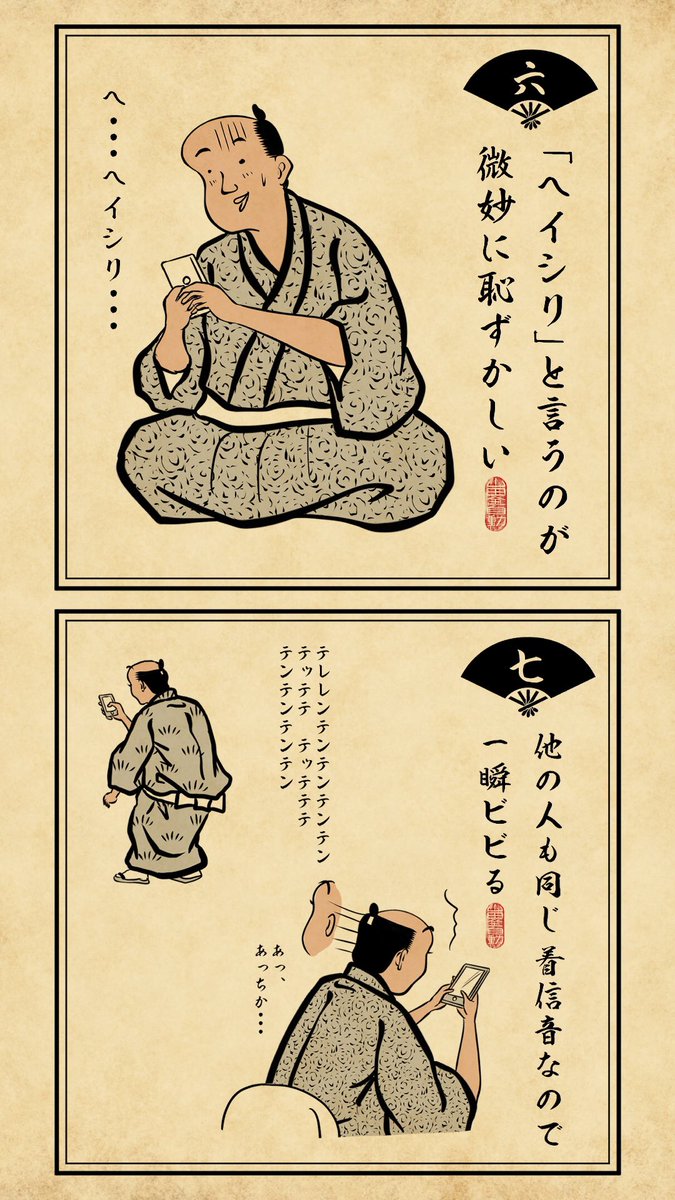 六
「ヘイシリ」と言うのが
微妙に恥ずかしい
へ・・・・ヘイシリ・・・
七
他の人も同じ着信音なので
一瞬ビビる
テレレンテンテンテンテン
テッテテ テッテテテ
テンテンテンテン
あっ、
あっちか・・・